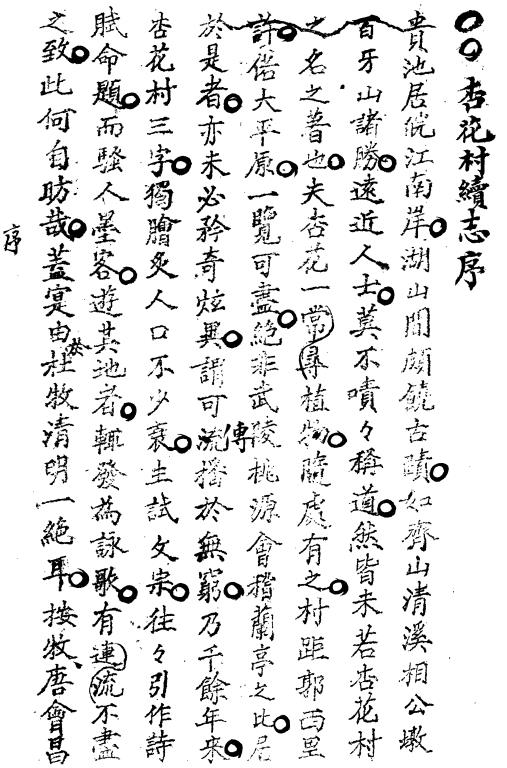 杏花村續志序
貴池居皖江南岸湖山間頗饒古蹟如齊山清溪相公墩
百牙山諸勝遠近人士莫不嘖々稱道然皆未若杏花村
之名之著也夫杏花一常尋植物隨處有之村距郭西里
許偌大平原一覽可盡絕非武陵桃源會稽蘭亭之比居
於是者亦未必矜奇炫異謂可流傳播於無窮乃千餘年來
杏花村三字獨膾炙人口不少衰主試文宗往々引作詩
賦命題而騷人墨客遊其地者輒發為詠歌有連流不盡
之致此何自昉哉蓋寔由於杜牧清明一絕耳按牧唐會昌
序